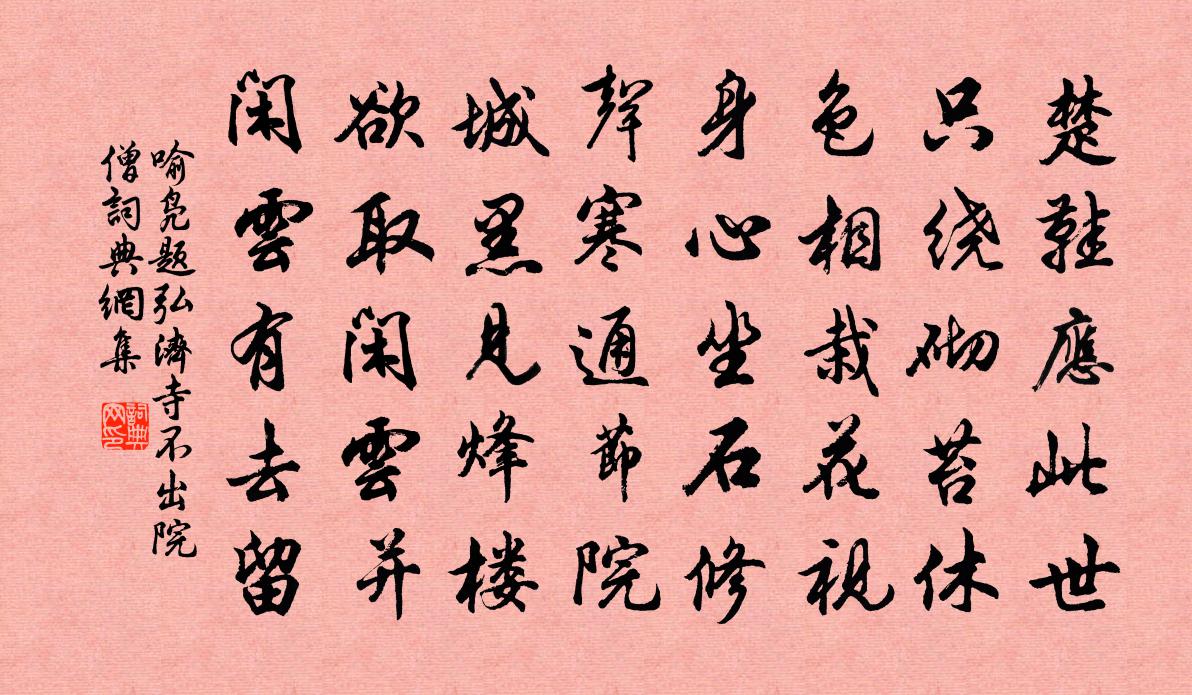 楚鞋應此世
只绕砌苔休
色相栽花視
身心坐石修
聲寒通節院
城黑見烽楼
欲取闲雲并
闲雲有去留
喻凫题弘濟寺不出院
僧詞典網集
詞典網印